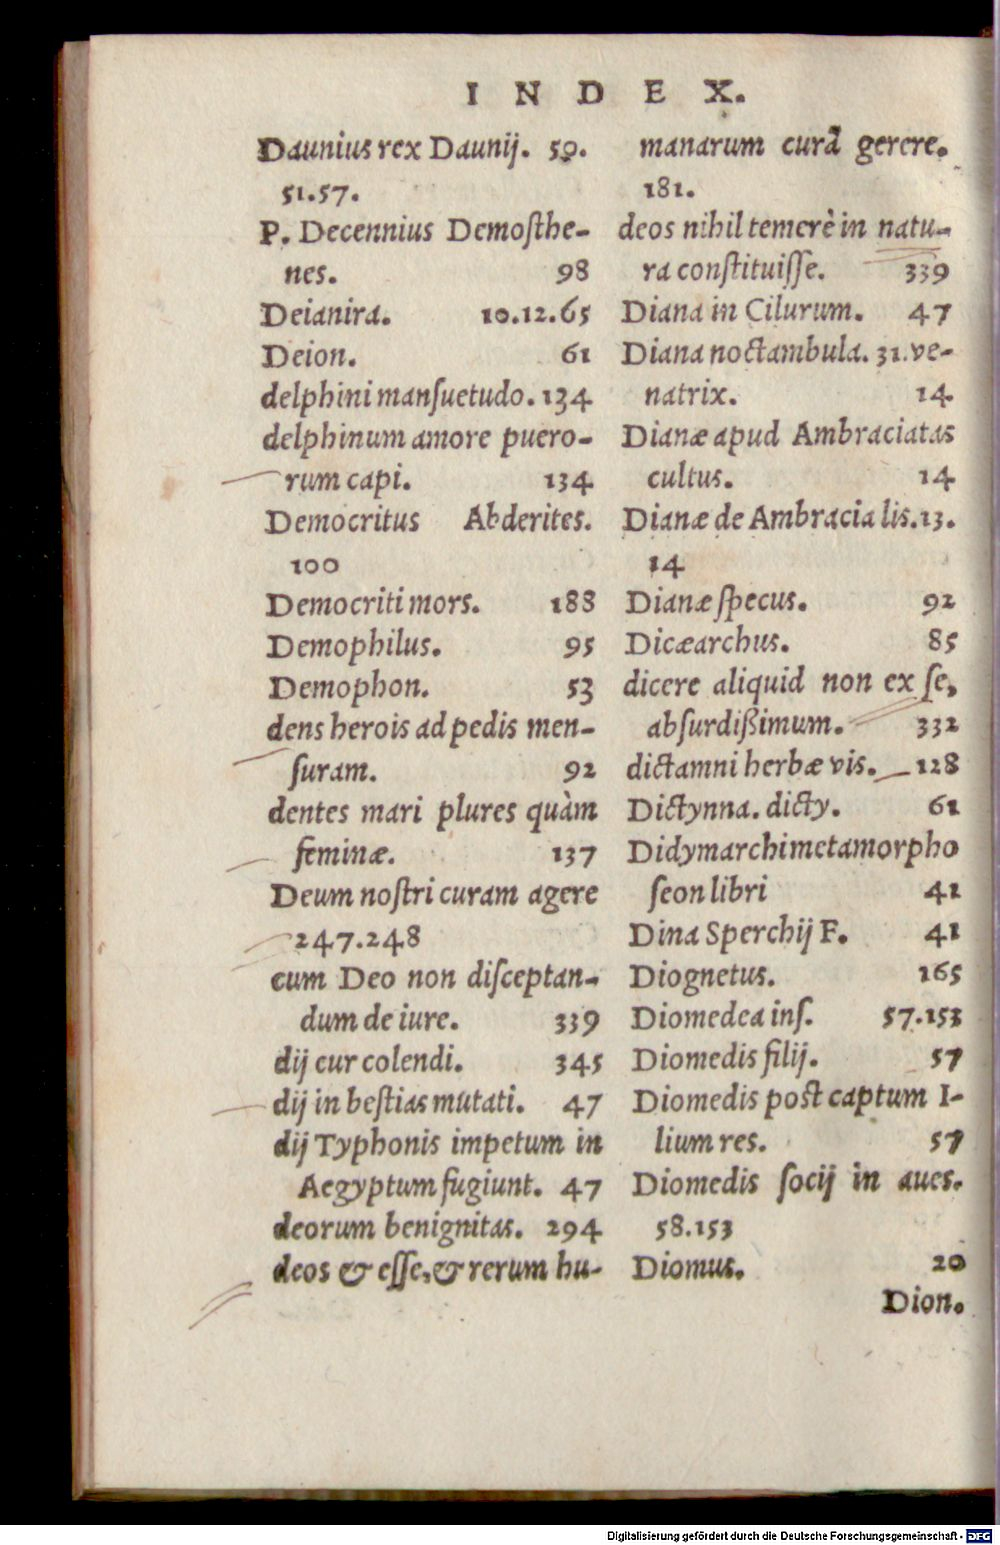 INDEX.
Daunius rex Daunij. 50.
51.57.
P. Decennius Demosthe-
nes. 98
Deianira. 10.12.65
Deion. 61
delphini mansuetudo. 134
delphinum amore puero-
rum capi. 134
Democritus Abderites.
100
Democriti mors. 188
Demophilus. 95
Demophon. 53
dens herois ad pedis men-
suram. 92
dentes mari plures quàm
feminæ. 137
Deum nostri curam agere
247.248
cum Deo non disceptan-
dum de iure. 339
dij cur colendi. 345
dij in bestias mutati. 47
dij Typhonis impetum in
Aegyptum fugiunt. 47
deorum benignitas. 294
deos & esse, & rerum hu-
manarum curā gerere.
181.
deos nihil temerè in natu-
ra constituisse. 339
Diana in Cilurum. 47
Diana noctambula. 31. ve-
natrix. 14
Dianæ apud Ambraciatas
cultus. 14
Dianæ de Ambracia lis. 13.
14
Dianæ specus. 92
Dicæarchus. 85
dicere aliquid non ex se,
absurdißimum. 332
dictamni herbæ vis. 128
Dictynna. dicty. 61
Didymarchi metamorpho
seon libri 41
Dina Sperchij F. 41
Diognetus. 165
Diomedea ins. 57.153
Diomedis filij. 57
Diomedis post captum I-
lium res. 57
Diomedis socij in aues.
58.153
Diomus. 20
Dion.
Digitalisierung gefördert durch die Deutsche Forschungsgemeinschaft - DFG